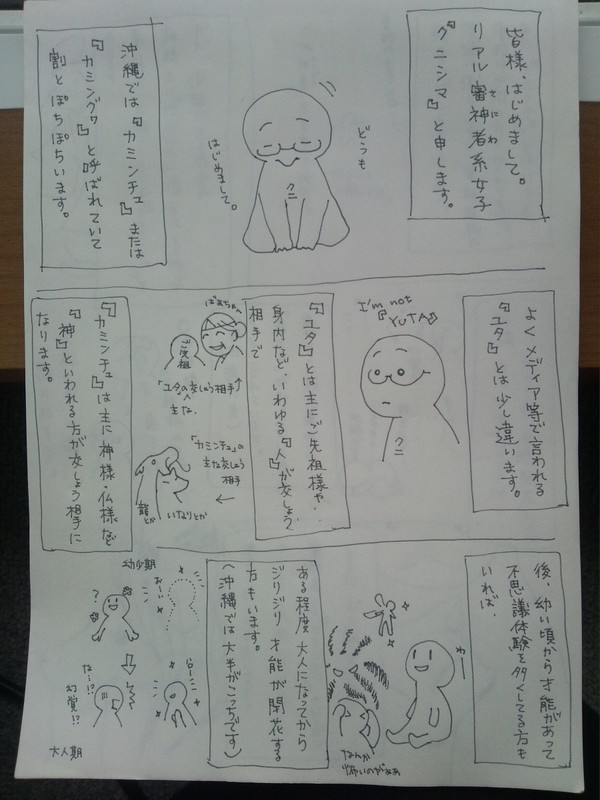 皆様、はじめまして。
リアル審神者系女子
さにわ
『クニシマ』と申します。
どうも
はじめまして。
クニ
沖縄では『カミンチュ』または
『カミングヮ』と呼ばれていて
割とぽちぽちいます。
よくメディア等で言われる
『ユタ』とは少し違います。
I'm not
『YUTA』
クニ
『ユタ』とは主にご先祖様や、
身内など、いわゆる『人』が交しょう
相手で
ばあちゃん
ご先祖
「ユタ」の交しょう相手↑
主な
「カミンチュ」の
主な交しょう
相手
←
龍とか
いなりとか
『カミンチュ』は主に神様・仏様など
『神』といわれる方が交しょう相手に
なります。
後、幼い頃から才能があって
不思議体験を多くしてる方も
いれば、
わー
なんか
怖いのがぁぁ
ある程度大人になってから
ジリジリ才能が開花する
方もいます。
(沖縄では大半がこっちです)
幼少期
おーい
?
おーい
な…!?
幻覚!?
大人期